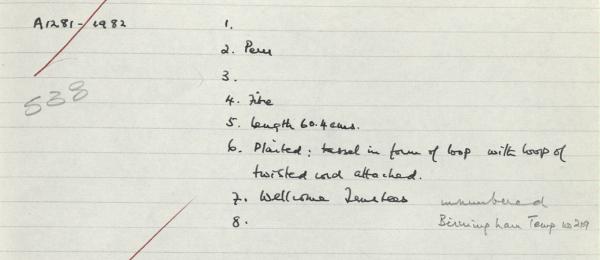 A1281-1982
1.
2. Peru
538
3.
4. Fibre
5. Length 60.4cms.
6. Plaited; tassel in form of loop with loop of
twisted cord attached.
7. Wellcome Trustees unnumbered
8. Birmingham Temp no 209